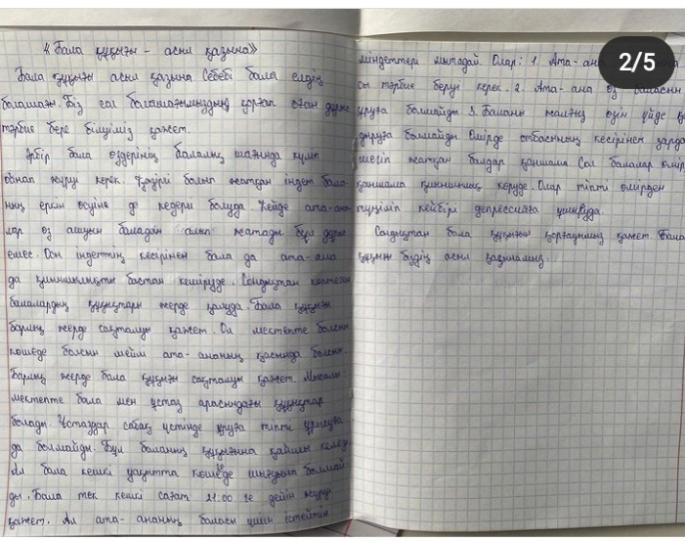 «Бала құқығы - асыл қазына»
Бала құқығы асыл қазына себебі бала елдің
болашағы. Біз сол болашағымыздың қорғап оған дұрыс
тәрбие бере білуіміз қажет.
Әрбір бала өздерінің балалық шағында күліп
ойнап жүруі керек. Қазіргі болып жатқан індет бала-
ның еркін өсуіне де кедергі болуда. Кейде ата-ана-
лар өз ашуын баладан алып жатады бұл дұрыс
емес. Осы індеттің кесірінен бала да ата-ана
да қиыншылықты бастан кешіруде. Сондықтан көптеген
балалардың құқықтары жерде қалуда. Бала құқығы
барлық жерде сақталуы қажет. Ол мектепте болсын
көшеде болсын мейлі ата-ананың қасында болсын.
Барлық жерде бала құқығы сақталуы қажет. Мысалы
мектепте бала мен ұстаз арасындағы құқықтар
болады. Ұстаздар сабақ үстінде ұруға тіпті ұрысуға
да болмайды. Бұл баланың құқығына қайшы келеді
Ал бала кешкі уақытта көшеде шығуына болмай
ды. Бала тек кешкі сағат 21:00 ге дейін жүруі
қажет. Ал ата-ананың баласы үшін істейтін
міндеттері мынадай. Олар: 1. Ата-ана
тәрбие беруі керек. 2. Ата-ана өз баласын
ұруға болмайды 3. Баланы жалғыз өзін үйде
дыруға болмайды. Өмірде отбасының кесірінен зарда
шегіп жатқан балдар қаншама Сол балалар өмір
қаншама қиыншылық көруде. Олар тіпті өмірден
түңіліп кейбірі депрессияға ұшырауда.
Сондықтан бала құқығын қорғауымыз қажет. Бала
құқығы біздің асыл қазынамыз.
2/5